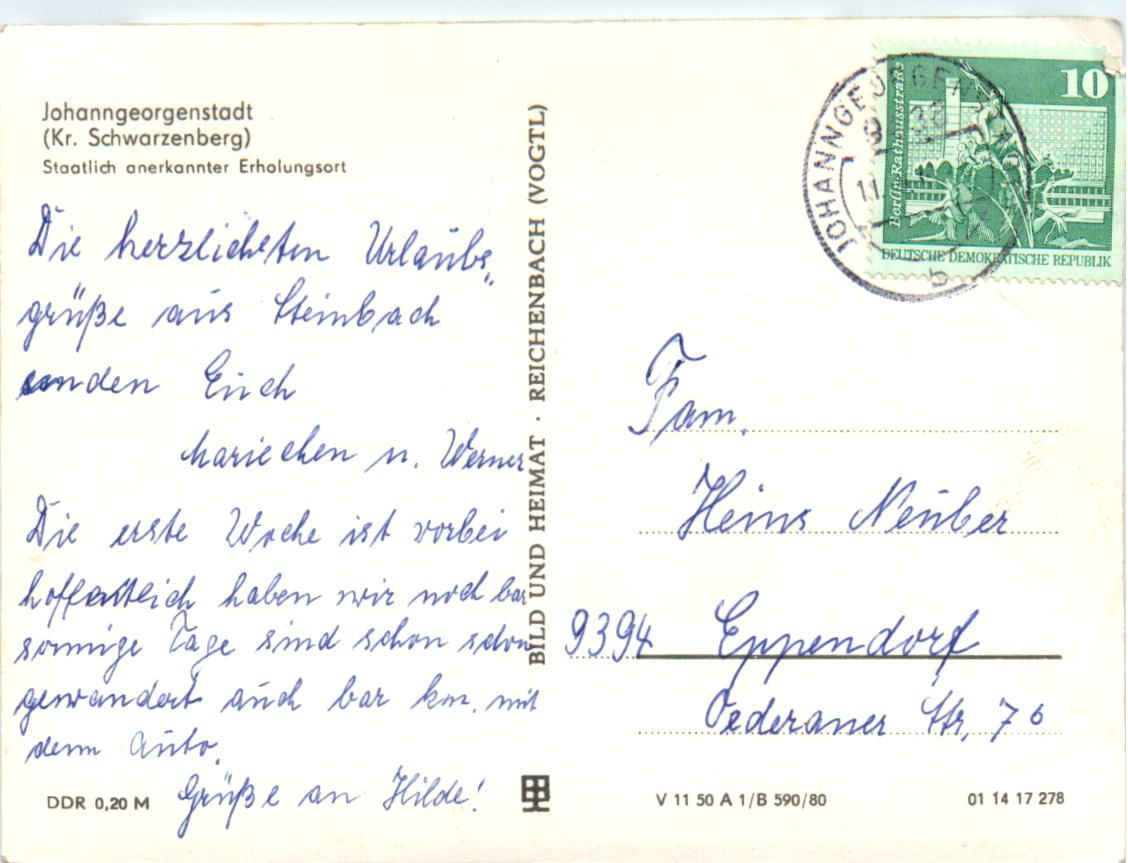 Johanngeorgenstadt
(Kr. Schwarzenberg)
Staatlich anerkannter Erholungsort
Die herzlichsten Urlaubs„
grüße aus Steinbach
senden Euch
Mariechen u. Werner
Die erste Woche ist vorbei
hoffentlich haben wir noch bar
sonnige Tage sind schon schön
gewandert auch bar km. mit
dem Auto.
Grüße an Hilde!
DDR 0,20 M
BILD UND HEIMAT · REICHENBACH (VOGTL)
JOHANNGEORGENSTADT
b
10
Berlin-Rathausstraße
DEUTSCHE DEMOKRATISCHE REPUBLIK
Fam.
Heins Neuber
9394 Eppendorf
Oederaner Str. 76
V 11 50 A 1/B 590/80
01 14 17 278